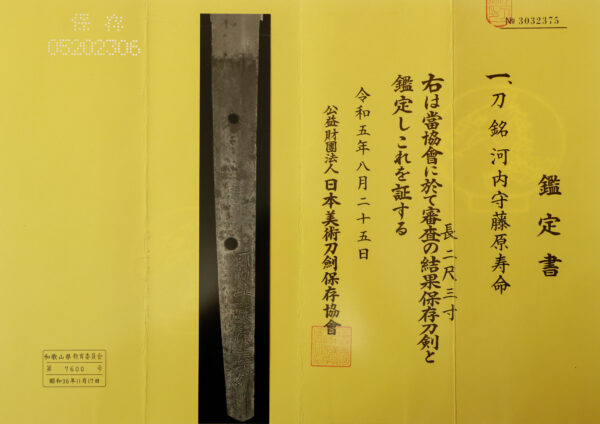 № 3032375
鑑定書
一、刀 銘 河内守藤原寿命
長 二尺三寸
右は當協會に於て審査の結果保存刀剣と
鑑定しこれを証する
令和五年八月二十五日
公益財團法人 日本美術刀劍保存協會
保存
05202306
和歌山県教育委員会
第 7600 号
昭和36年11月17日